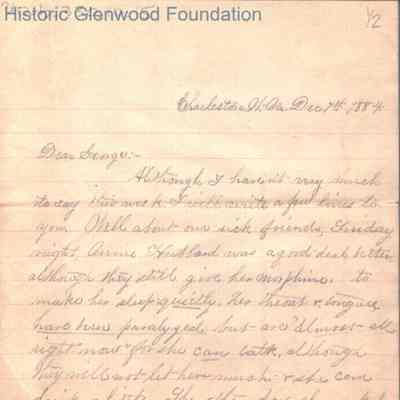 Historic Glenwood Foundation
1/2
Charleston W. Va. Dec 7th, 1884.
Dear George:-
Although I haven't very much
to say this week I will write a few lines to
you. Well about our sick friends, Sunday
night, Annie Hubbard was a good deal better
although they still give her morphine to
make her sleep quietly. her throat & tongue
have been paralyzed but are "almost all
right now" for she can talk, although
they will not let her much & she can